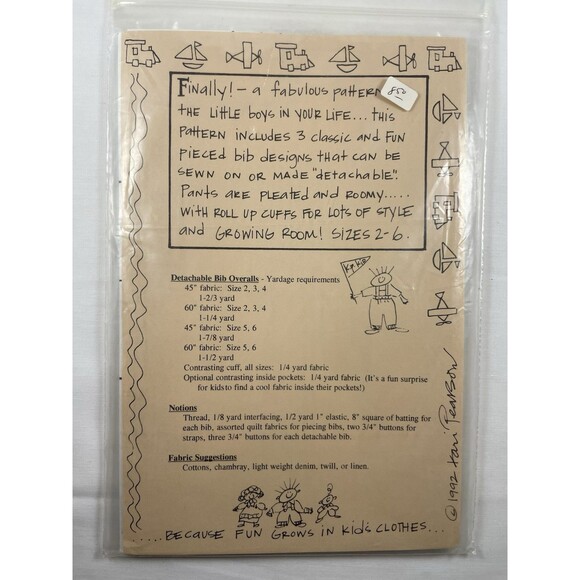 Finally! - a fabulous pattern
THE LITTLE BOYS IN YOUR LIFE... THIS
PATTERN INCLUDES 3 CLASSIC AND FUN
PIECED BIB DESIGNS THAT CAN BE
SEWN ON OR MADE "detachable".
PANTS ARE PLEATED AND ROOMY.....
WITH ROLL UP CUFFS FOR LOTS OF STYLE
and GROWING ROOM! SIZES 2-6.
850
Detachable Bib Overalls - Yardage requirements
45" fabric: Size 2, 3, 4
1-2/3 yard
60" fabric: Size 2, 3, 4
1-1/4 yard
45" fabric: Size 5, 6
1-7/8 yard
60" fabric: Size 5, 6
1-1/2 yard
Contrasting cuff, all sizes: 1/4 yard fabric
Optional contrasting inside pockets: 1/4 yard fabric (It's a fun surprise
for kids to find a cool fabric inside their pockets!)
Notions
Thread, 1/8 yard interfacing, 1/2 yard 1" elastic, 8" square of batting for
each bib, assorted quilt fabrics for piecing bibs, two 3/4" buttons for
straps, three 3/4" buttons for each detachable bib.
Fabric Suggestions
Cottons, chambray, light weight denim, twill, or linen.
.....BECAUSE FUN GROWS IN KID'S CLOTHES...
© 1992 Lori Pearson